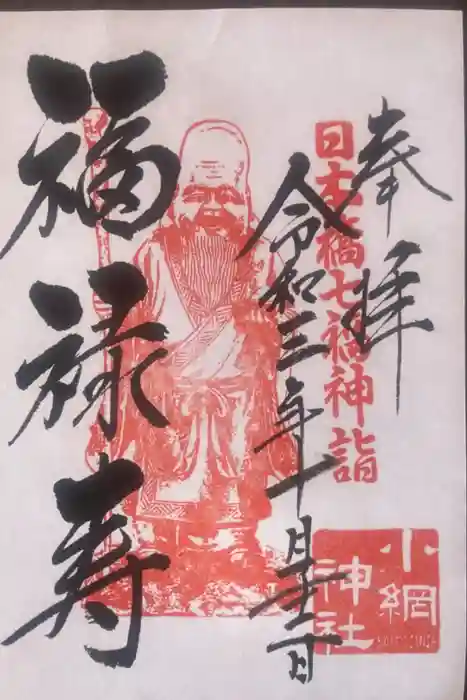 奉拝
日本橋七福神詣
令和三年
福禄寿
小網
神社